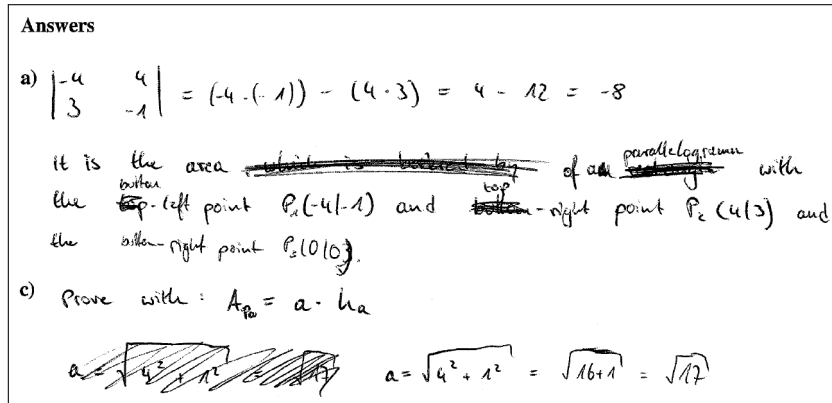 Answers
a) |-4 4| = (-4 · (-1)) - (4 · 3) = 4 - 12 = -8
|3 -1|
it is the area of a parallelogramm with
the bottom-left point P₁(-4|-1) and top-right point P₂(4|3) and
the bottom-right point P₃(0|0).
c) Prove with: A = a · hₐ
a = √4² + 1² = √17 a = √4² + 1² = √16+1 = √17